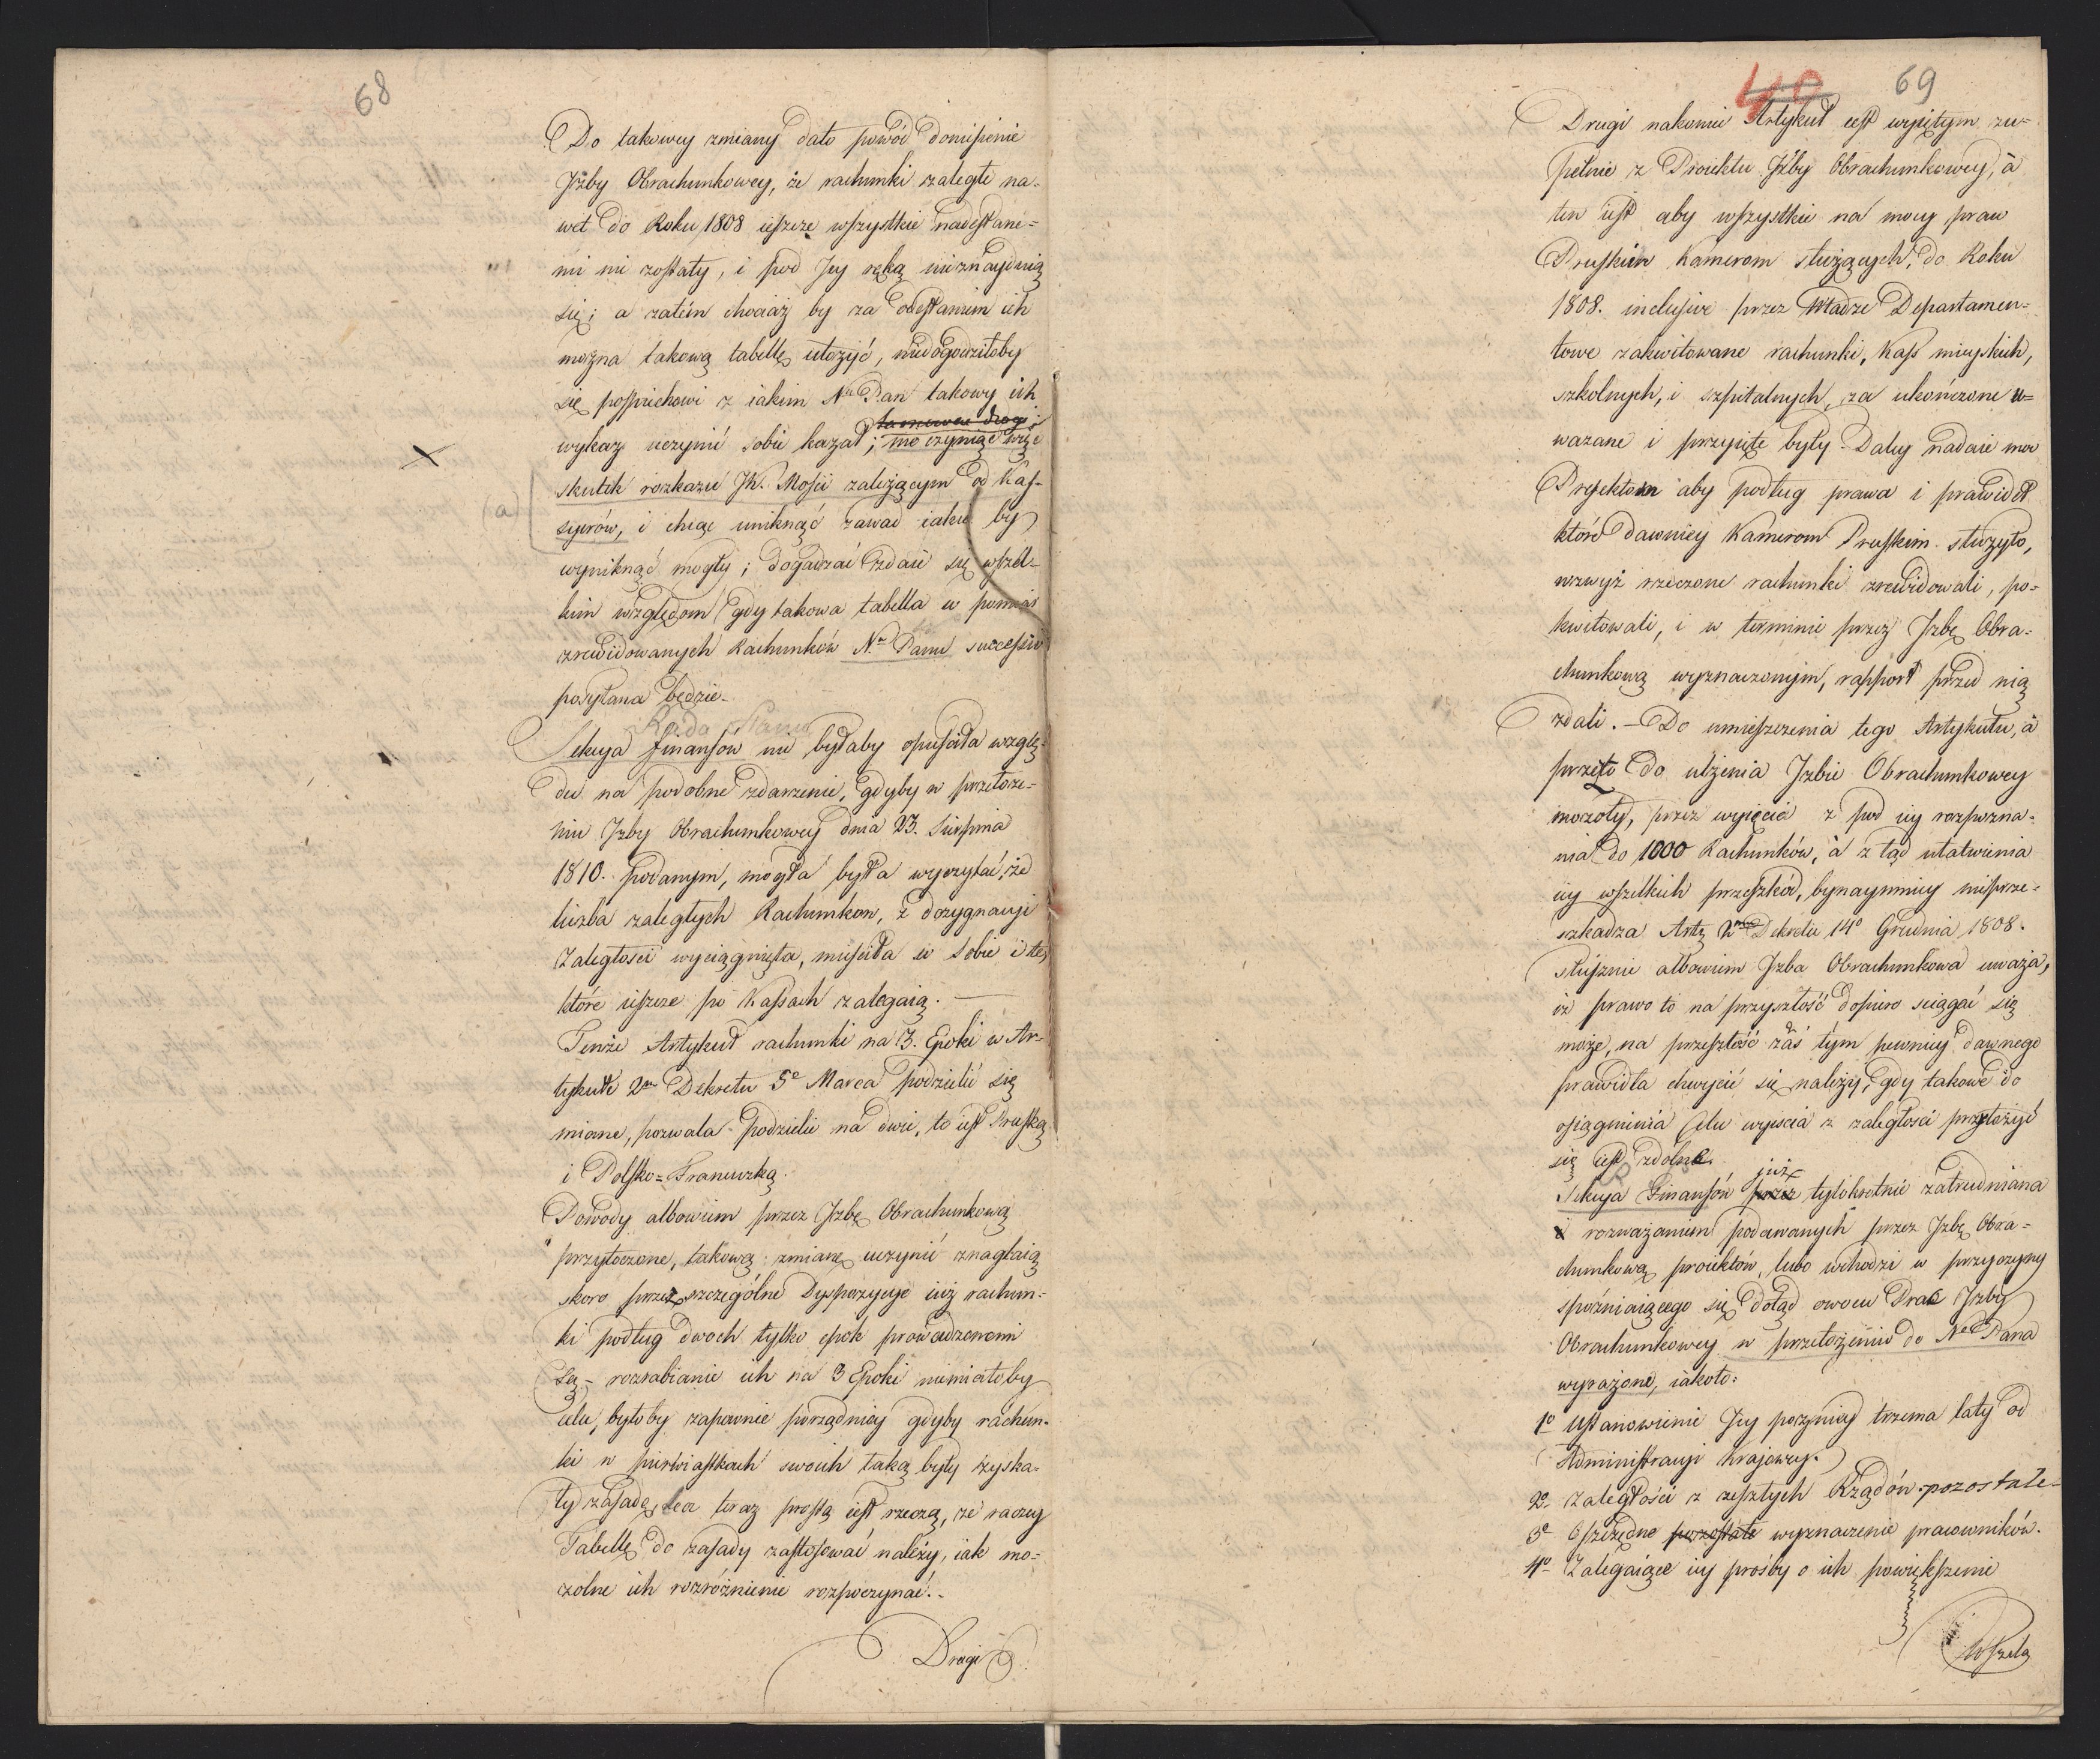 68
Do takowey zmiany dało powód doniesienie
Jzby Obrachunkowey, że rachunki zaległe na-
wet do Roku 1808 ieszcze wszystkie nadesłane-
mi nie zostały, i pod Jey ręką nieznayduią
się; a zatém chociaż by za odesłaniem ich
można takową tabellę ułożyć, niedogodziłoby
się pospiechowi z iakim Nay Pan takowy ich
wykaz uczynić sobie kazał; czyniąc więc
skutek rozkazu JK. Mości zależącym od Kas-
(a)
syerów, i chcąc uniknąć zawad iakie by
wyniknąć mogły; dogadzać zdaie się wszel-
kim względom gdy takowa tabella w pomiar
zrewidowanych Rachunków Na Panu successive
posyłana będzie.
Rada Stanu
Sekcya finansów nie byłaby opuściła wzglę-
du na podobne zdarzenie, gdyby w przełoże-
niu Jzby Obrachunkowey dnia 23. Sierpnia
1810. podanym, mogła była wyczytać, że
liczba zaległych Rachunkow, z dozygnacyi
zaległości wyciągnięta, mieściła w sobie i te,
które ieszcze po Kassach zalegaią. —
Tenże Artykuł rachunki na 3. Epoki w Ar-
tykule 2m Dekretu 5o Marca podzielić się
miane, pozwala podzielić na dwie, to iest Pruską
i Polsko=Francuzką.
Powody albowiem przez Jzbę Obrachunkową
przytoczone, takową zmianę uczynić znaglaią
skoro przez szczególne Dyspozycye iuż rachun-
ki podług dwoch tylko epok prowadzonemi
są – rozrabianie ich na 3 Epoki niemiałoby
celu, byłoby zapewnie porządniey gdyby rachun-
ki w pierwiastkach swoich taką były zyska-
ły zasadę, lecz teraz prostą iest rzeczą, że raczey
Tabellę do zasady zastosować należy, iak mo-
zolne ich rozróżnienie rozpoczynać. -
Drugi
40 69
Drugi nakoniec Artykuł iest wyiętym zu-
pełnie z Proiektu Jzby Obrachunkowey, à
ten iest aby wszystkie na mocy praw
Pruskim Kamerom służących, do Roku
1808. inclusive przez Władze Departamen-
towe zakwitowane rachunki, Kass mieyskich,
szkolnych, i szpitalnych, za ukończone u-
ważane i przyięte były – Daley nadaie moc
Prefektom aby podług prawa i prawideł
które dawniey Kamerom Pruskim służyło,
wzwyż rzeczone rachunki zrewidowali, po-
kwitowali, i w terminie przez Jzbę Obra-
chunkową wyznaczonym, rapport przed nią
zdali. – Do umieszczenia tego Artykułu, à
przeto do ulżenia Jzbie Obrachunkowey
mozoły, przez wyięcie z pod iey rozpozna-
nia do 1000 Rachunków, à z tąd ułatwienia
iey wszelkich przeszkód, bynaymniey nieprze-
szkadza Arty 2m Dekretu 14o Grudnia 1808.
słusznie albowiem Jzba Obrachunkowa uważa,
iż prawo to na przyszłość dopiero sciągać się
może, na przeszłość zaś tym pewniey dawnego
prawidła chwycić się należy, gdy takowe do
osiągnienia celu wyiscia z zaległości przyłożyć
się iest zdolne.
już
Sekcya Finansów przez tylokrotnie zatrudniana
rozważaniem podawanych przez Jzbę Obra-
chunkową proiektów, lubo wchodzi w przyczyny
spóźniaiącego się dotąd owocu Prac Jzby
Obrachunkowey w przełożeniu do No Pana
wyrażone, iakoto:
1o Ustanowienie Jey pożniey trzema laty od
Administracyi Krajowey.
2o Zaległości z zeszłych Rządów pozostałe-
3o Oszczędne pozostałe wyznaczenie pracowników.
4o Zalegaiące iey prośby o ich powiększenie
Wszelą